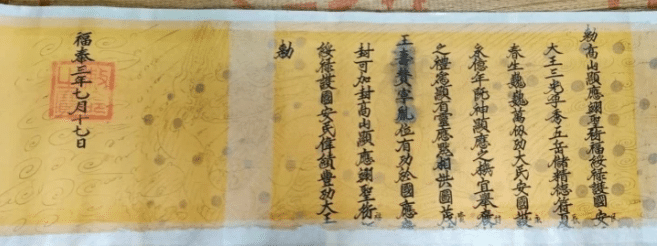 勅高山顯應翊聖衍福綏祿護國安
大王三光孕秀五岳儲精德符
春生巍巍萬仞功大民安國
億年神顯應之機宜舉
之禮焉顯有靈應默相洪圖
王位有功於國應
封可加封高山顯應翊聖衍
綏祿護國安民偉績豐功大王
勅
福泰三年七月十七日